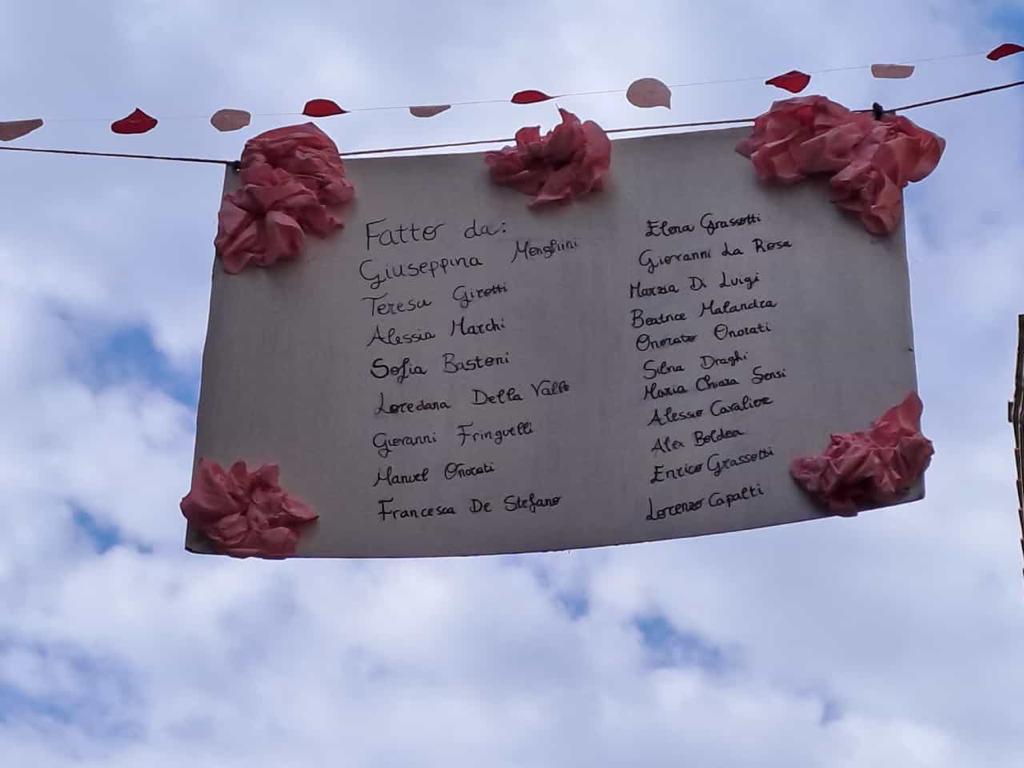 Fatto da:
Giuseppina Menghini
Teresa Girotti
Alessia Marchi
Sofia Bastoni
Loredana Della Valle
Giovanni Fringuelli
Manuel Onorati
Francesca De Stefano
Elena Grassotti
Giovanni La Rosa
Marzia Di Luigi
Beatrice Malandra
Onorato Onorati
Silvia Draghi
Maria Chiara Sensi
Alessio Cavaliere
Alex Boldea
Enrico Grassotti
Lorenzo Capalti